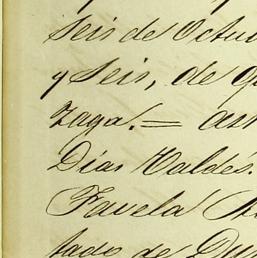 Seis de Octu
y Seis, de
zaga. = as
Dias Valdés.
Favela
tado de Du